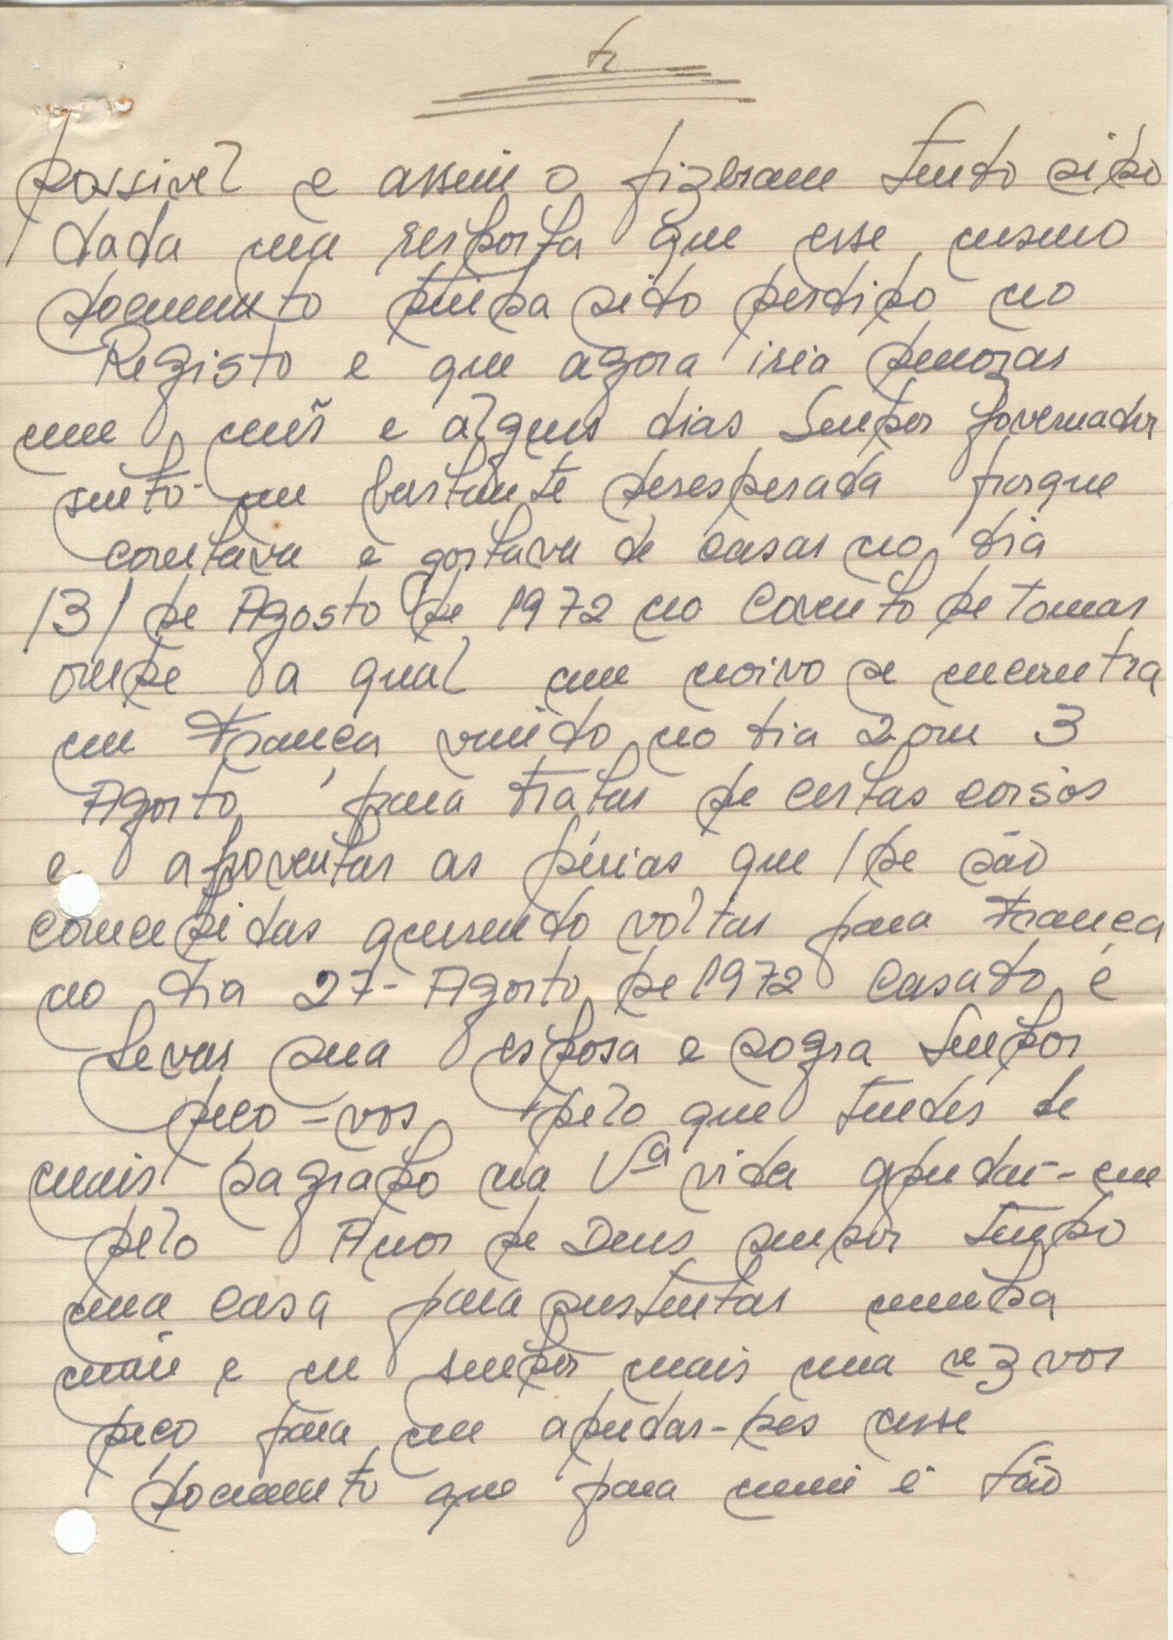 possivel e assim o fizeram tendo sido
dada uma resposta que esse mesmo
documento tinha sido perdido no
Registo e que agora iria demorar
um mês e alguns dias Senhor Governador
sinto-me bastante desesperada porque
contava e gostava de casar no dia
/3/ de Agosto de 1972 no Convento de Tomar
onde a qual meu noivo se encontra
em França vindo no dia 2 ou 3
Agosto para tratar de certas coisas
e aproveitar as férias que lhe são
concedidas querendo voltar para França
no dia 27- Agosto de 1972 casado e
levar sua esposa e sogra Senhor
peço-vos pelo que tendes de
mais sagrado na Vª vida ajudai-me
pelo Amor de Deus senhor tenho
uma casa para sustentar minha
mãe e eu senhor mais uma vez vos
peço para me ajudar-des esse
documento que para mim é tão